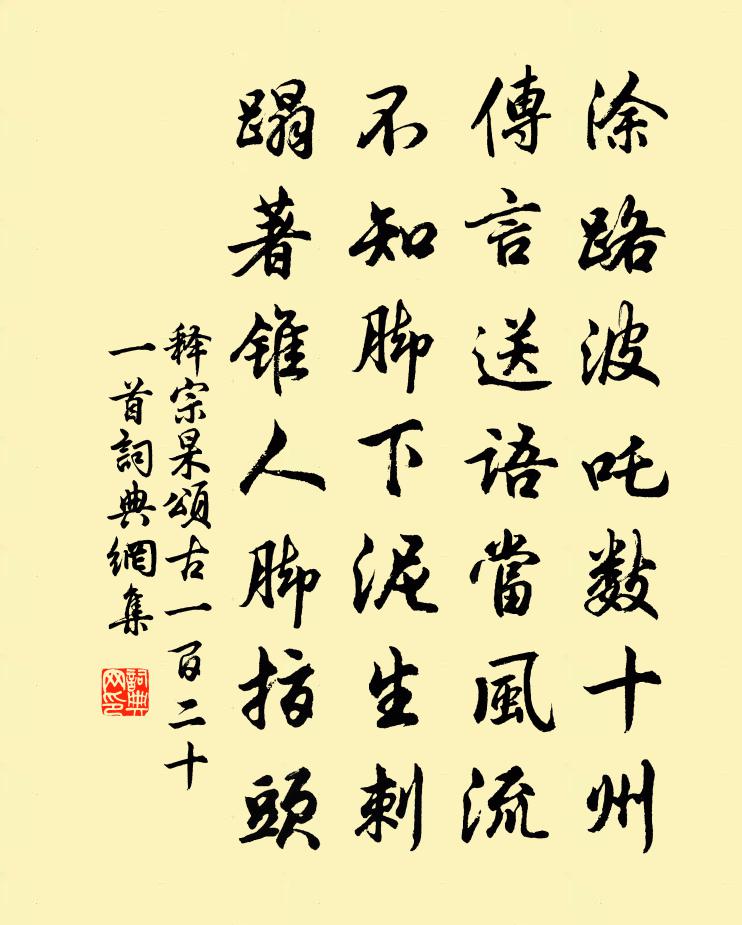 涂路波吒数十州
傳言送語當風流
不知脚下泥生刺
蹋著錐人脚指頭
释宗杲頌古一百二十
一首詞典網集
詞典网印